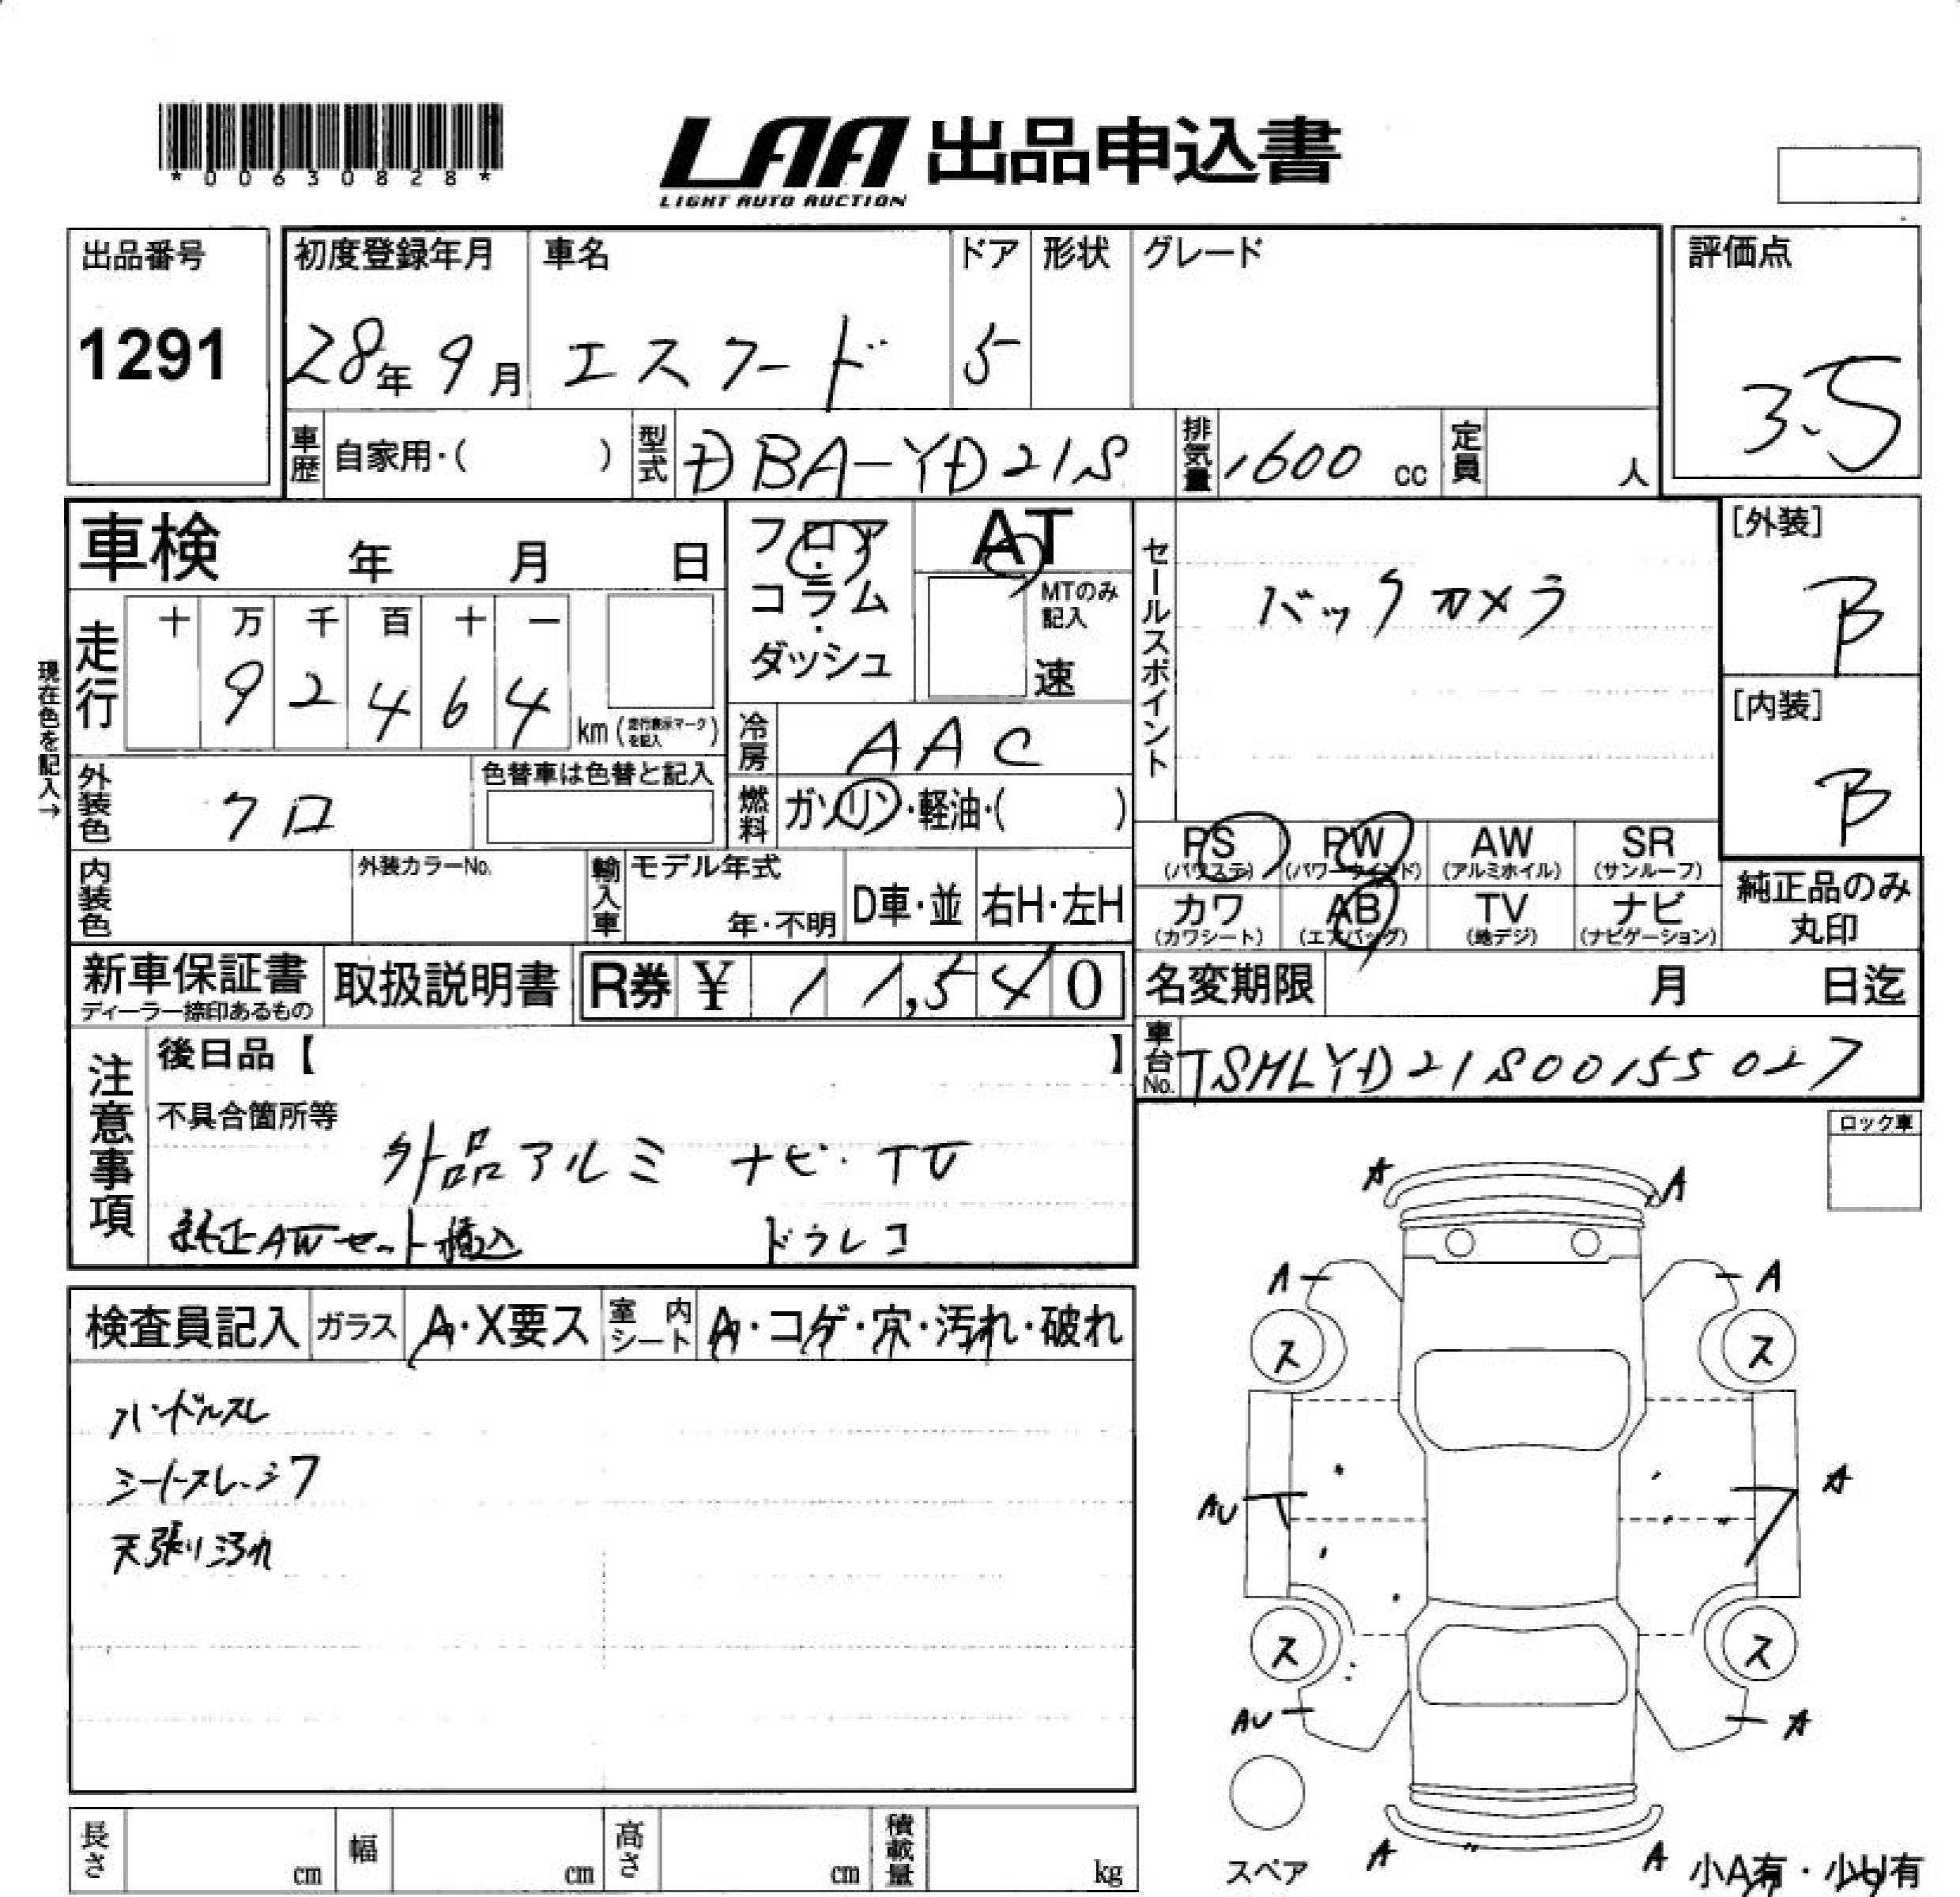 *00630828*
LAA 出品申込書
LIGHT AUTO AUCTION
出品番号
1291
初度登録年月
28年9月
車名
エスクード
ドア
5
形状
グレード
評価点
3.5
車歴 自家用・( )
型式 DBA-YD21S
排気量 1600 cc
定員 人
車検 年 月 日
フロア・コラム・ダッシュ
AT
MTのみ記入
速
セールスポイント
バックカメラ
[外装]
B
[内装]
B
現在色を記入→
走行
十 万 千 百 十 一
9 2 4 6 4
km (走行表示マークを記入)
冷房 AAC
外装色 クロ
色替車は色替と記入
燃料 ガソリン・軽油・( )
内装色
外装カラーNo.
輸入車
モデル年式
年・不明
D車・並
右H・左H
PS (パワステ)
PW (パワーウインド)
AW (アルミホイル)
SR (サンルーフ)
カワ (カワシート)
AB (エアバッグ)
TV (地デジ)
ナビ (ナビゲーション)
純正品のみ丸印
新車保証書
ディーラー捺印あるもの
取扱説明書
R券 ¥ 11,540
名変期限 月 日迄
車台No. TSMLYD21S00155027
注意事項
後日品【 】
不具合箇所等
外品アルミ ナビ・TV
純正AWセット積込 ドラレコ
ロック車
検査員記入
ガラス A・X要ス
室内シート A・コゲ・穴・汚れ・破れ
ハンドルスレ
シートスレ・シワ
天張り汚れ
A A
A A
ス ス
AU A
ス ス
AU A
スペア
A A
小A有・小U有
長さ cm
幅 cm
高さ cm
積載量 kg